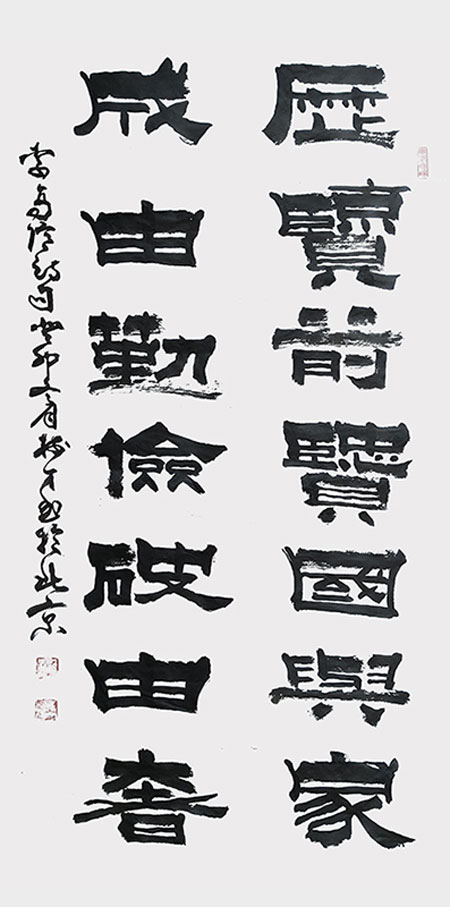 歷覽前賢國與家
成由勤儉破由奢
李商隱詩句 癸卯 才書於北京